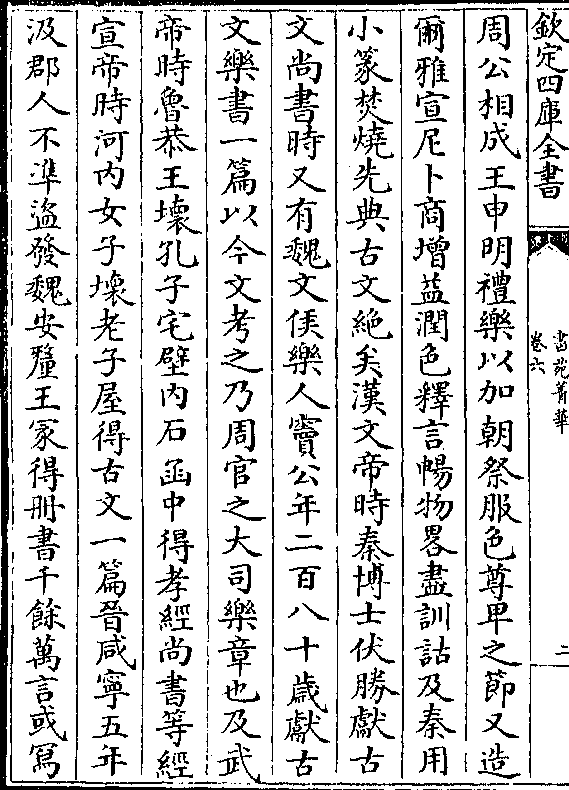 欽定四庫全書
書苑菁華
卷六
二
周公相成王申明禮樂以加朝祭服色尊卑之節又造
爾雅宣尼卜商增益潤色釋言暢物畧盡訓詁及秦用
小篆焚燒先典古文絶矣漢文帝時秦博士伏勝獻古
文尚書時又有魏文侯樂人竇公年二百八十歲獻古
文樂書一篇以今文考之乃周官之大司樂章也及武
帝時魯恭王壞孔子宅壁内石函中得孝經尚書等經
宣帝時河内女子壞老子屋得古文一篇晉咸寧五年
汲郡人不準盜發魏安釐王冢得册書千餘萬言或寫